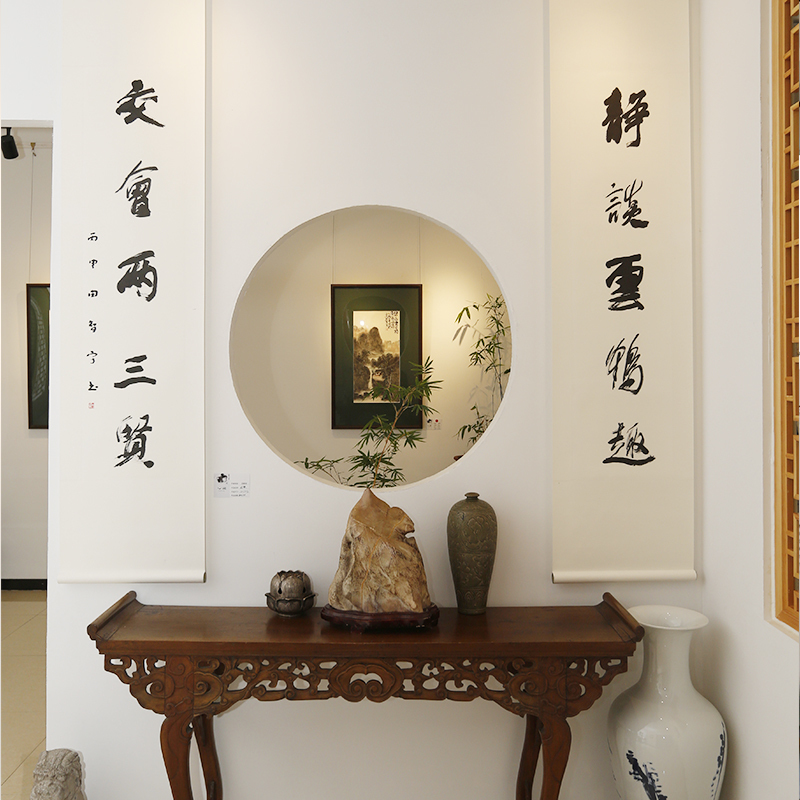 靜談雲鶴趣
交會兩三賢
丙申田